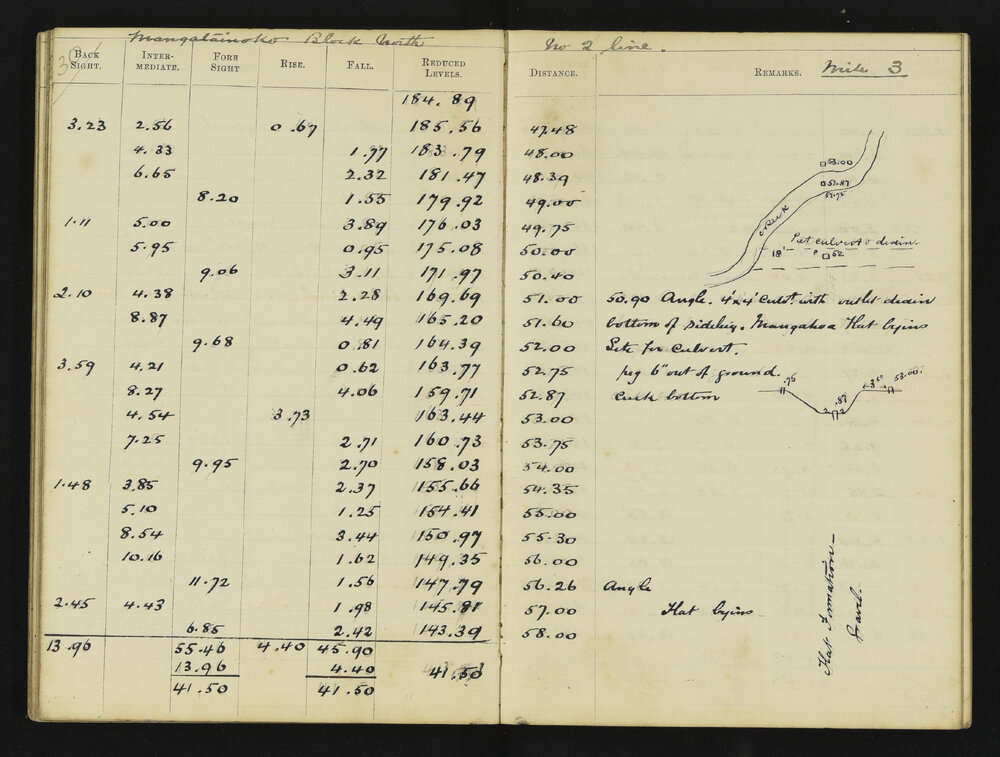 Mangatainoko Block North No 2 line.
BACK SIGHT. INTERMEDIATE. FORE SIGHT RISE. FALL. REDUCED LEVELS. DISTANCE. REMARKS. Mile 3
184.89
3.23 2.56 0.67 185.56 47.48
4.33 1.77 183.79 48.00
6.65 2.32 181.47 48.39
8.20 1.55 179.92 49.00
1.11 5.00 3.89 176.03 49.75
5.95 0.95 175.08 50.00
9.06 3.11 171.97 50.40
2.10 4.38 2.28 169.69 51.00 50.90 Angle. 4'x4' Culvt with outlet drain
8.87 4.49 165.20 51.60 bottom of sideling. Mangahoa Flat begins
9.68 0.81 164.39 52.00 Site for Culvert.
3.59 4.21 0.62 163.77 52.75 peg 6" out of ground.
8.27 4.06 159.71 52.87 Creek bottom
4.54 3.73 163.44 53.00
7.25 2.71 160.73 53.75
9.95 2.70 158.03 54.00
1.48 3.85 2.37 155.66 54.35
5.10 1.25 154.41 55.00
8.54 3.44 150.97 55.30
10.16 1.62 149.35 56.00
11.72 1.56 147.79 56.26 Angle
2.45 4.43 1.98 145.81 57.00 Flat begins
6.85 2.42 143.39 58.00
13.96 55.46 4.40 45.90
13.96 4.40 41.50
41.50 41.50
3.00
52.87
52.75
Creek
Put culvert & drain.
18' P 52
.75 3 53.00
.87
Flat Formation
Gravel.